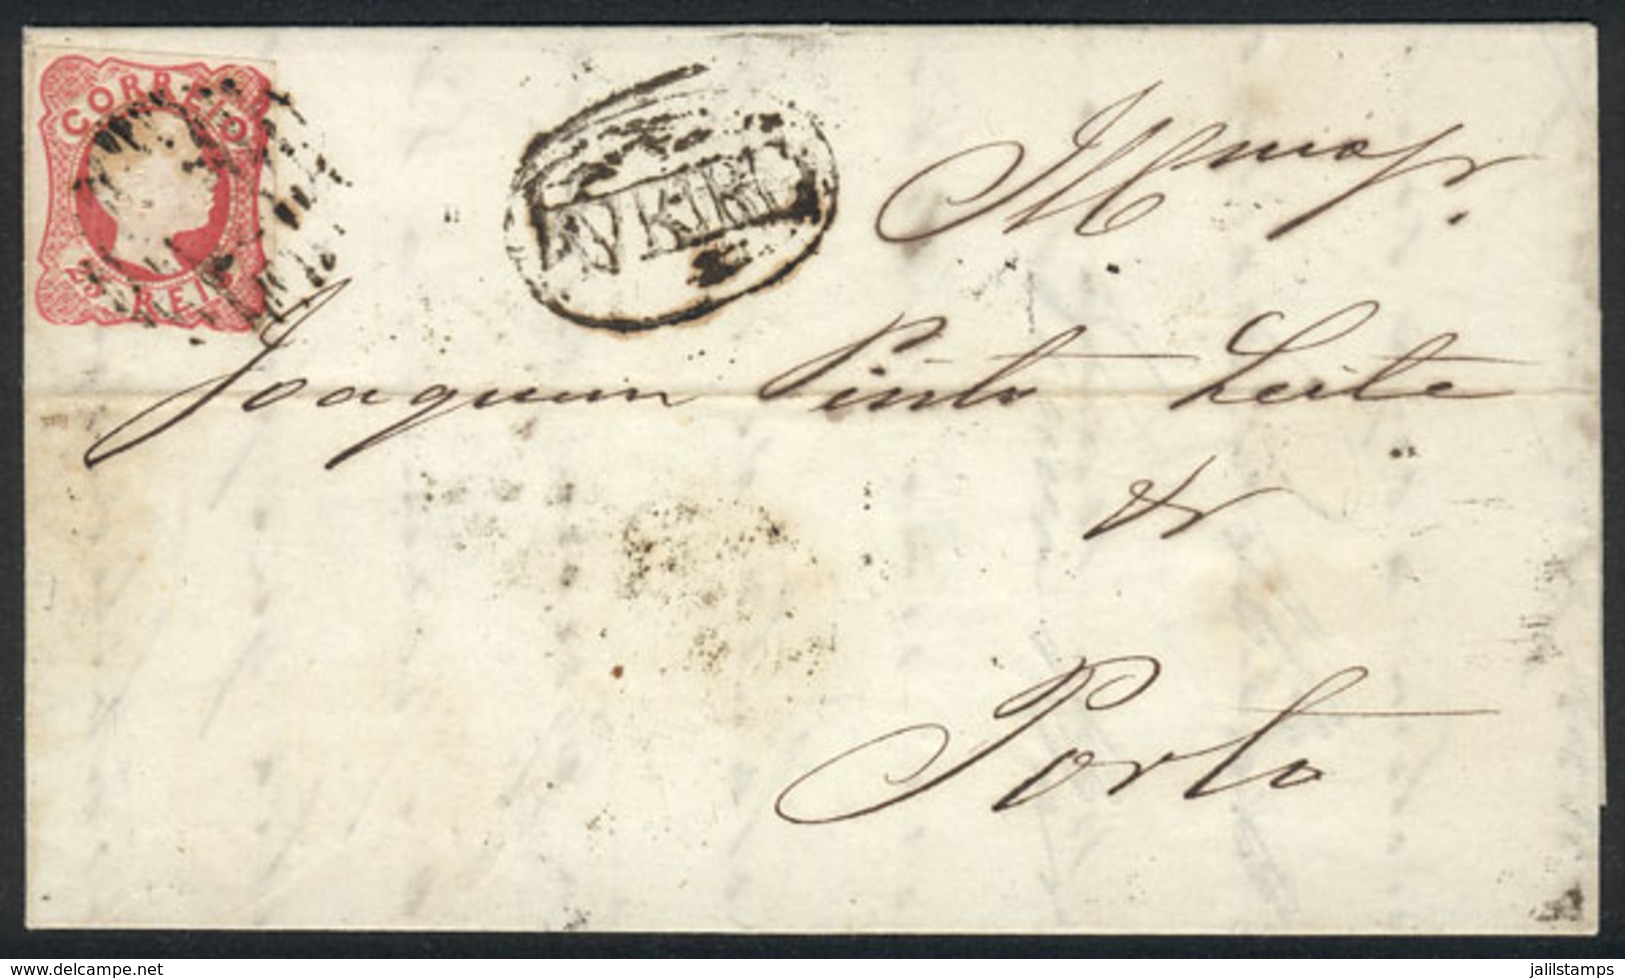 CORREIO
25 REIS
AVEIRO
Illmo Sr.
Joaquim Pinto Leite
&
Porto
delcampe.net
jalilstamps